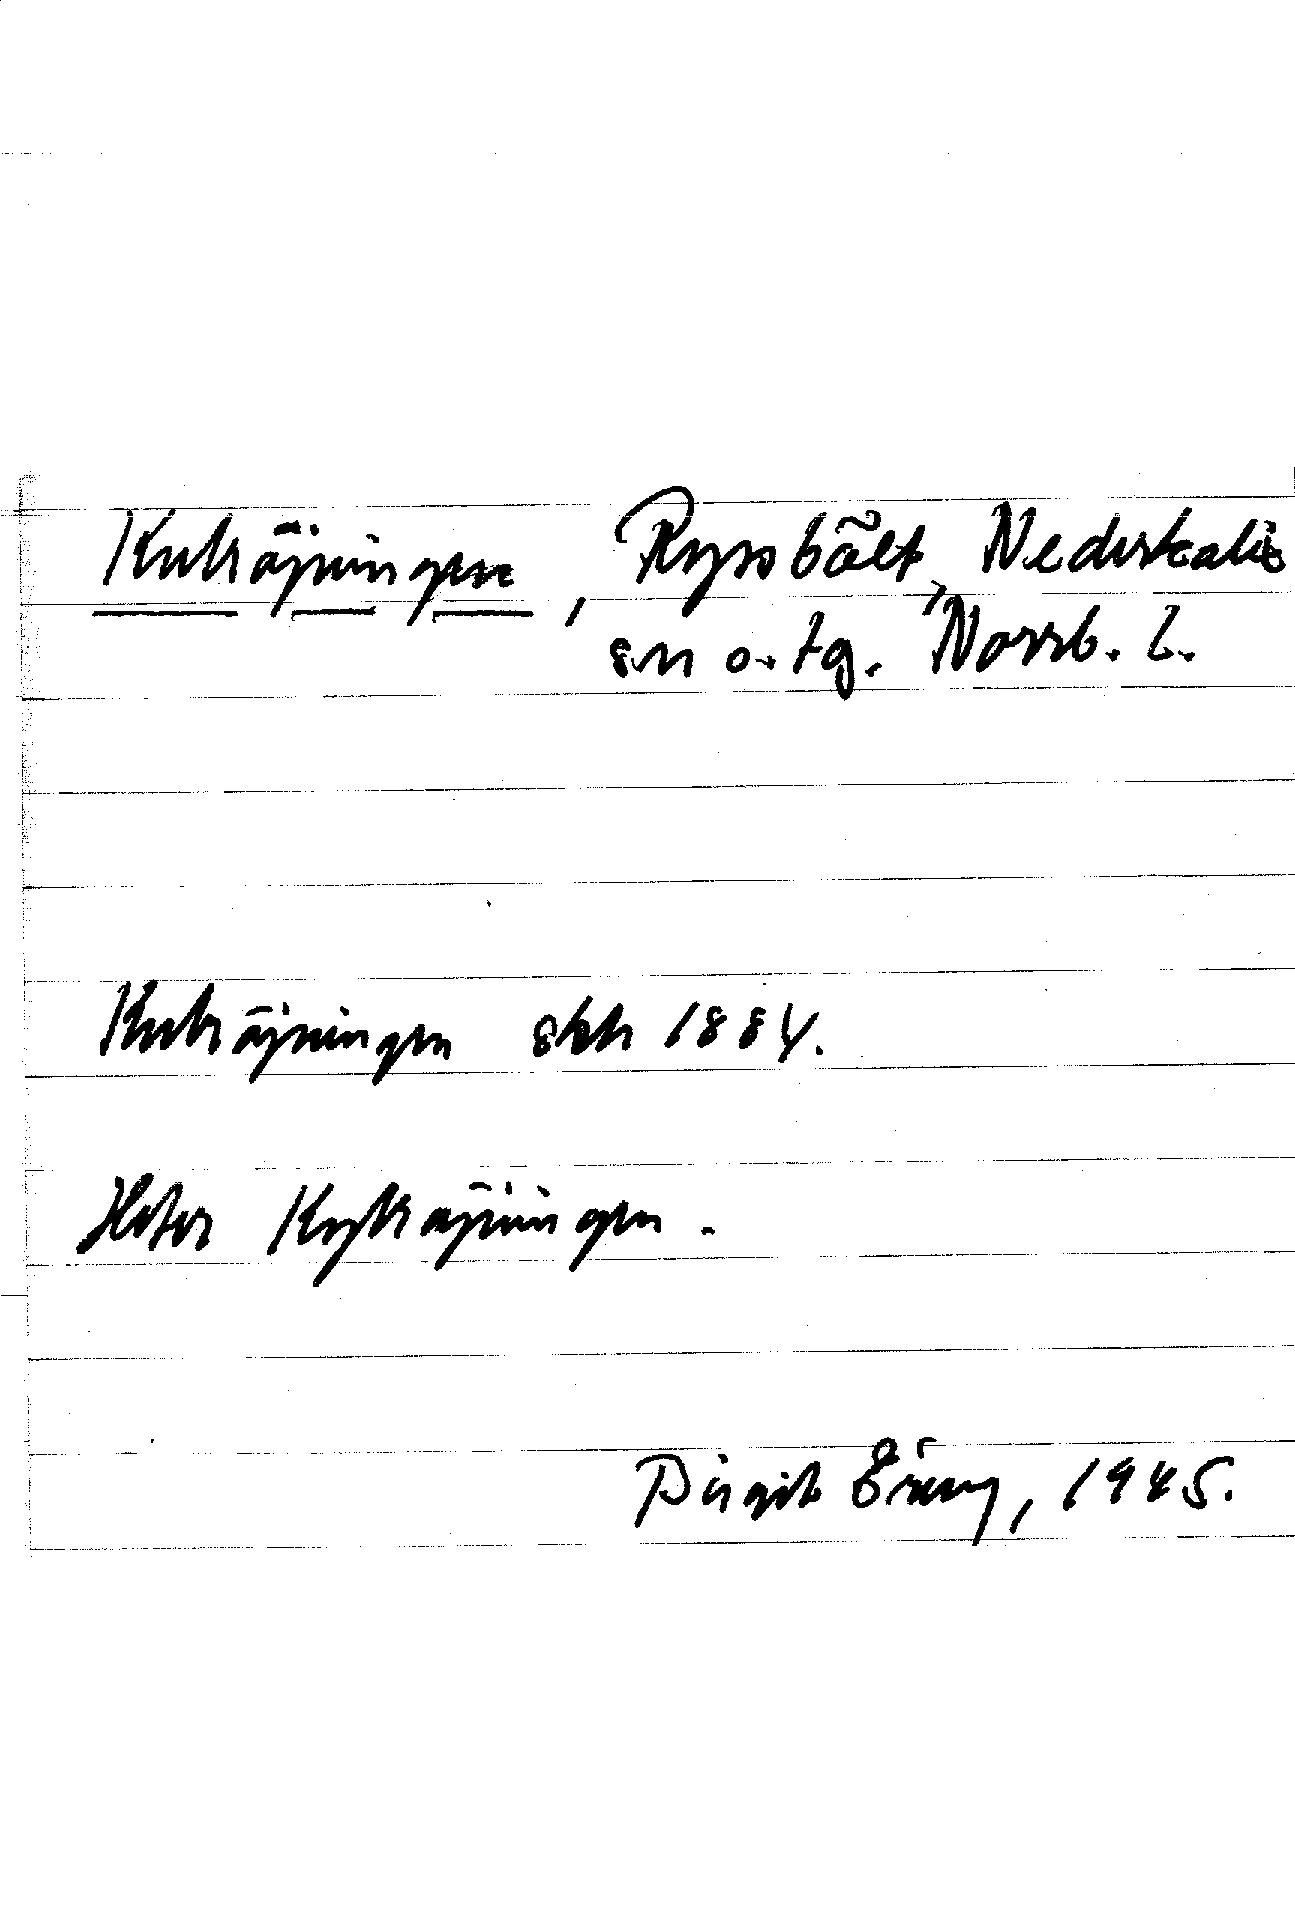 Kuträjningen, Ryssbält, Nederkalix
sn o. tg. Norrb. l.
Kuträjningen skk 1884.
Heter Kyträjningen.
Birgit 1945.